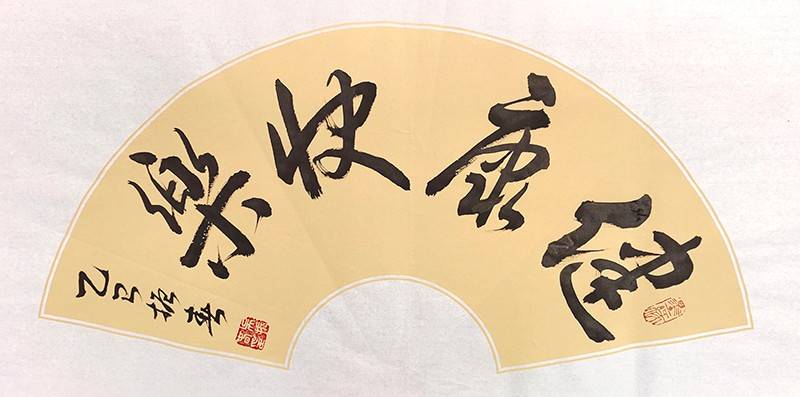 健康快樂
乙巳